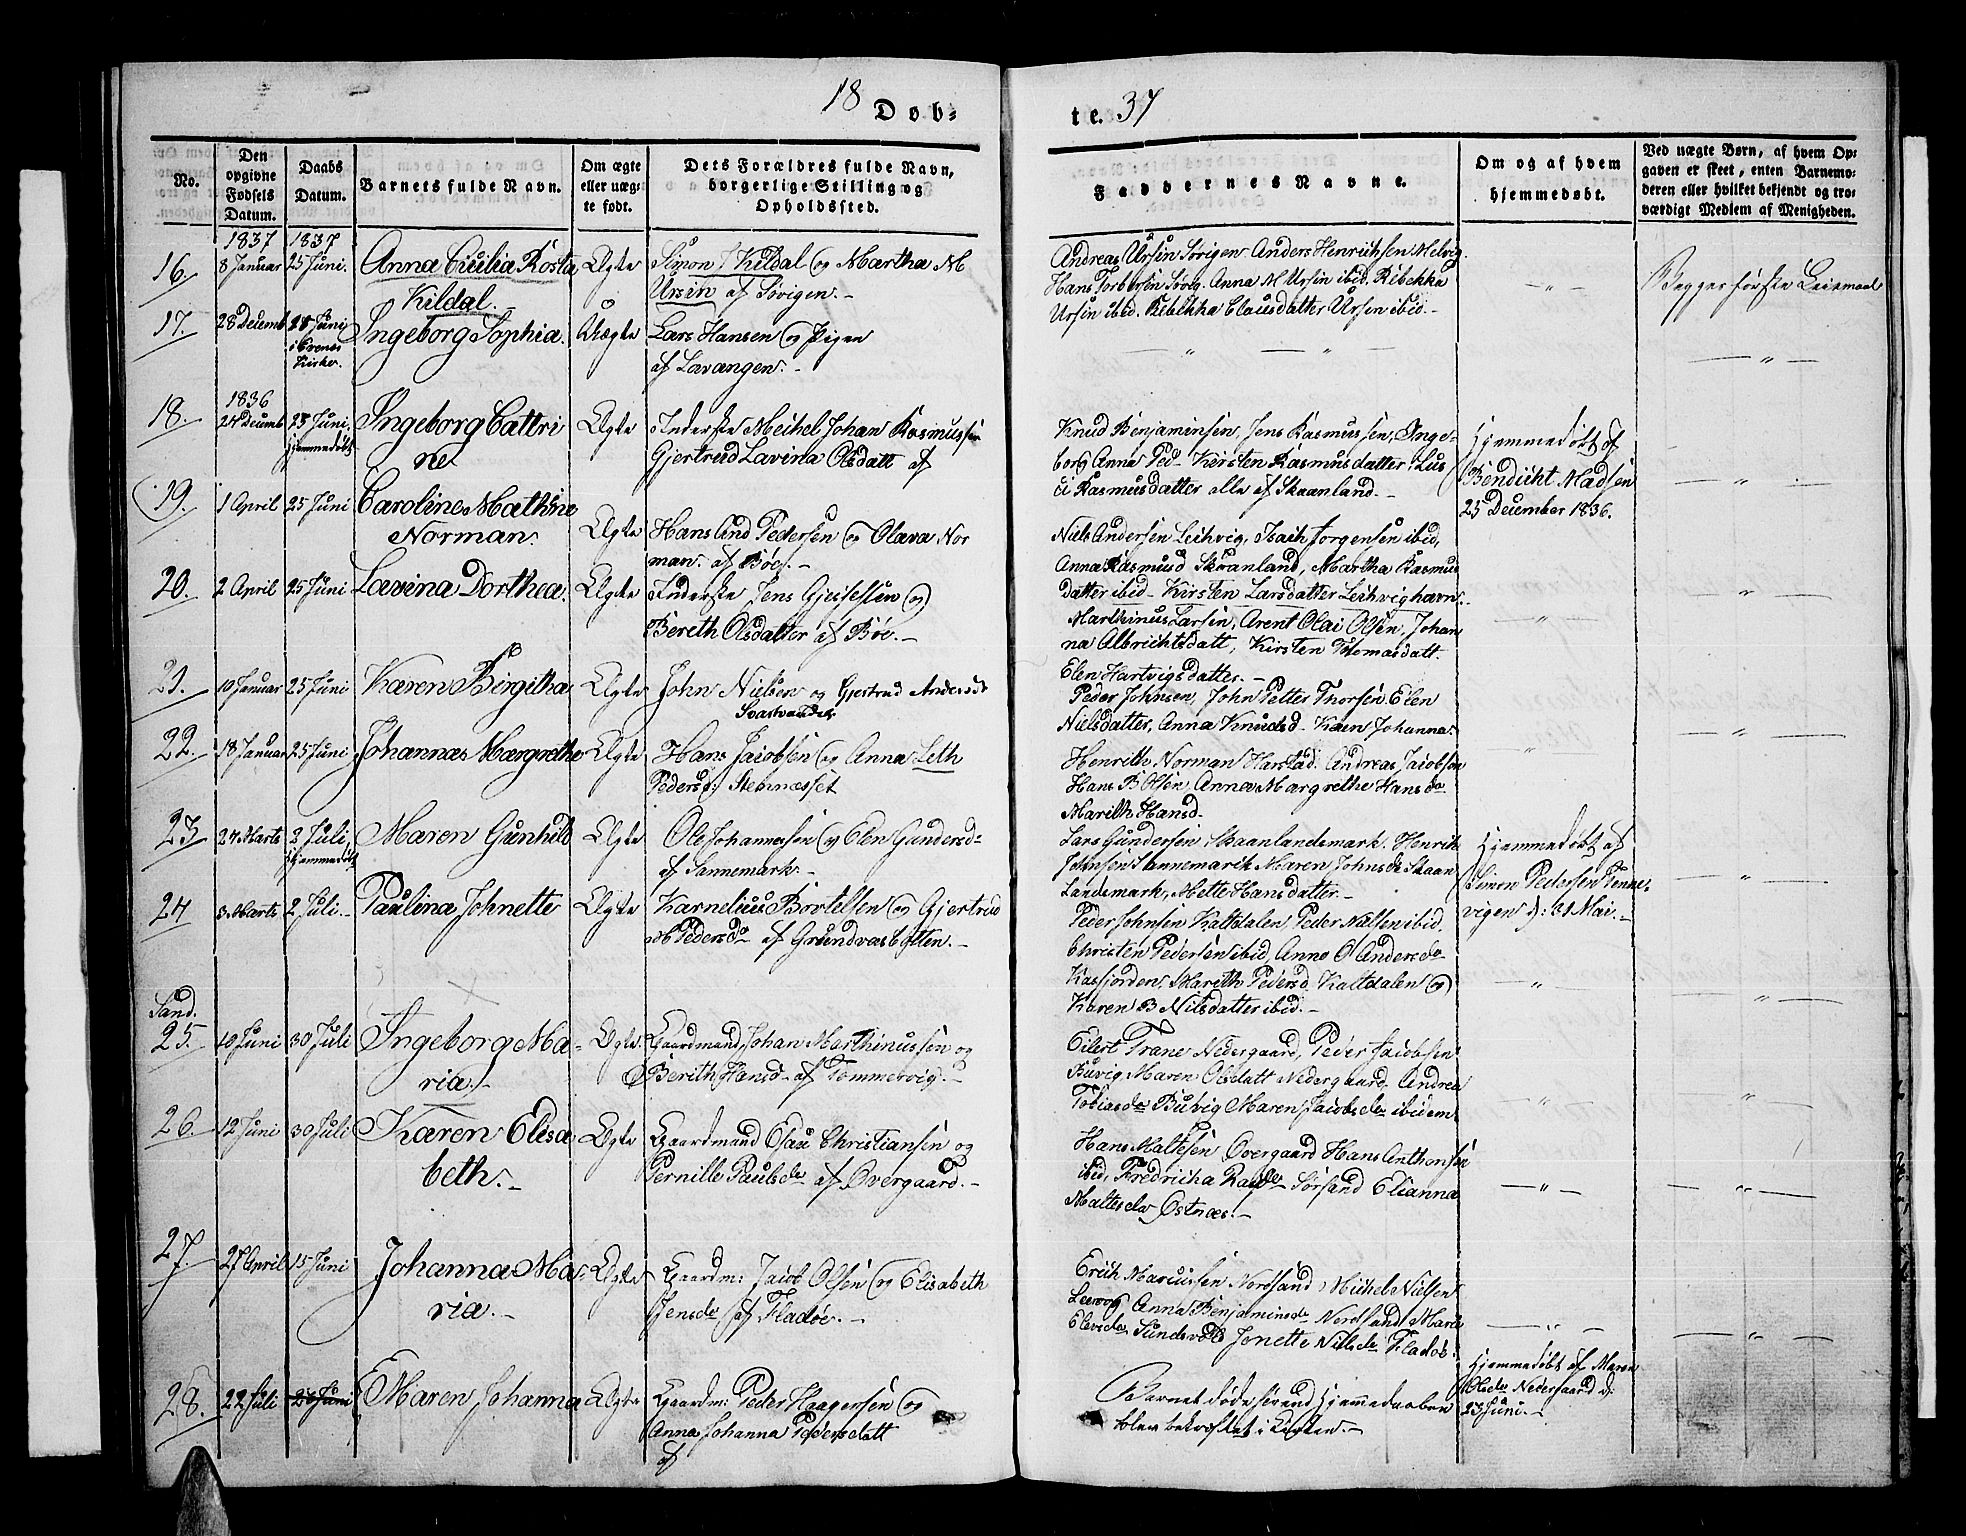 18 Døb-
te. 37
No.
Den opgivne Fødsels Datum.
Daabs Datum.
Barnets fulde Navn.
Om ægte eller uægte født.
Dets Forældres fulde Navn, borgerlige Stilling og Opholdssted.
Faddernes Navne.
Om og af hvem hjemmedøbt.
Ved uægte Børn, af hvem Opgaven er skeet, enten Barnemoderen eller hvilket bekjendt og troværdigt Medlem af Menigheden.
1837 1837
16. 8 Januar 25 Juni. Anna Cicilia Rosta Ægte Simon Kildal og Martha M
Kildal. Ursin af Sørigen.
Andreas Ursin Sørigen Anders Henrichsen Melvig
Ursin ibid. Rebekka Clausdatter Ursin ibid.
17. 28 Decemb Juni Ingeborg Sophia. Uægte Lars Hansen og Pigen
Kirke. af Lavangen.
Begges første Leiermaal
1836
18. 24 Decemb 25 Juni, Ingeborg Cattri Ægte Inderste Meihel Johan Rasmussen
hjemmedøbt ne Gjertrud Lavina Olsdatt af
Knud Benjaminsen, Jens Rasmussen, Inge-
borg Anna Ped- Kirsten Rasmusdatter Lus
ci Rasmusdatter alle af Skaanland.
Hjemmedøbt af
Bendicht Madsen
25 December 1836.
19. 1 April 25 Juni Caroline Mathine
Norman. Ægte Hans And Pedersen og Olava Nor
man. af Bøe.
Niels Andersen Leihvig, Isach Jorgensen ibid,
Anna Rasmusd Skaanland, Martha Rasmus
datter ibid- Kirsten Larsdatter Leihvighavn.
20. 2 April 25 Juni Lavina Dorthea. Ægte Inderste Jens Gjessessen og
Bereth Olsdatter af Bøe.
Marthinus Larsen, Arent Olai Olsen, Johan
na Albrichtsdatt, Kirsten Thomasdatt.
Elen Hartvigsdatter.
21. 10 Januar 25 Juni Karen Birgitha Ægte John Nielsen og Gjertrud Andersdt
Svartvandet
Peder Johnsen, John Petter Thorsen Elen
Nielsdatter, Anna Knudsd- Karen Johanna
22. 18 Januar 25 Juni Johannas Margrethe Ægte Hans Jacobsen og Anna Leth
Pedersd: Stennesset
Henrith Norman Harstad. Andreas Jacobsen
Hans B Olsen Anna Margrethe Hansda
Marith Hansd.
23. 24 Marts 2 Juli, Maren Gunhild Ægte Ole Johannessen og Elen Gundersd-
hjemmedøbt af Sannemark.
Lars Gundersen Skaanlandsmark. Henrik
Johnsen Sannemark Maren Johnsde Skaan
Landsmark, Mette Hansdatter.
Hjemmedøbt af
Simon Pedersen Tenne-
vigen d: 31 Mai.
24 3 Marts 2 Juli. Paulina Johnette Ægte Karnelius Bortelsen og Gjertrud
M Pedersda af Grundvasbotten.
Peder Johnsen Kaltdalen, Peder Nilsen ibid,
Christen Pedersen ibid, Anne O Andersda
Kasfjorden, Marith Pedersd Kaltdalen og
Karen B Nilsdatter ibid.
Sand.
25. 10 Juni 30 Juli Ingeborg Ma- Ægte Gaardmand Johan Marthinussen og
ria. Berith Hansd- af Tommervig.
Eilert Trane Nedergaard, Peder Jacobsen
Buvig Maren Olsdatt Nedergaard, Andrea
Tobiasde Buvig Maren Jacobsde ibidem
26. 12 Juni 30 Juli Karen Elisa Ægte Gaardmand Esau Christiansen og
beth. Pernille Paulsde af Overgaard.
Hans Maltesen Overgaard Hans Anthonsen
ibid, Fredricha Sørsand Elianna
Maltesda Østnæs.
27. 27 April 15 Juni Johanna Ma- Ægte Gaardm: Jacob Olsen og Elisabeth
ria. Jensde af Fladøe.
Erich Marcussen Nordsand, Michel Nielsen
Anna Benjaminsde Nordsand Maria
Jonette Nielsde Fladøe.
28. 22 Juli Juni Maren Johanna Ægte Gaardm: Peder Haagensen og
Anna Johanna Pedersdatt
af
Barnet døde førend hjemmedaaben
blev bekræftet i Kirken.
Hjemmedøbt af Maren
Olsde Nedergaard d:
23 Juni.